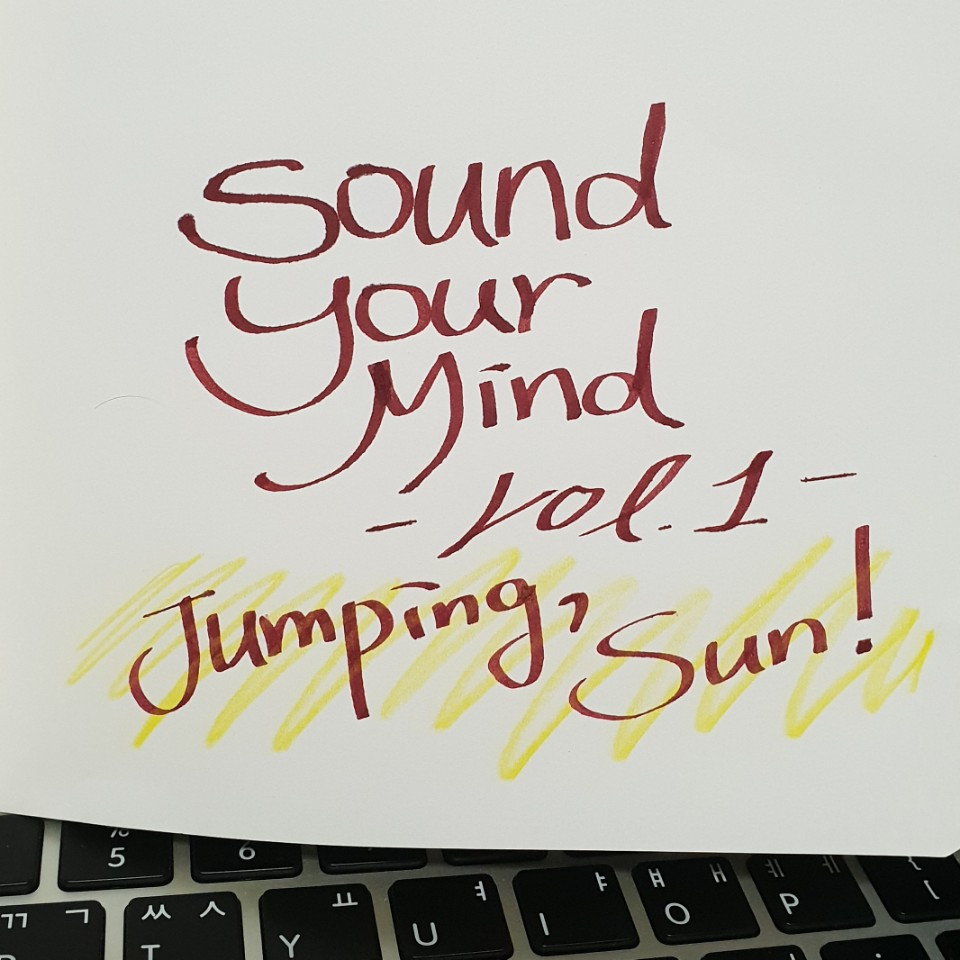 Sound
Your
Mind
- Vol. 1 -
Jumping, Sun!
5 6
ㄲ ㄱ ㅆ ㅅ ㅛ ㅕ ㅑ ㅒ ㅐ ㅖ ㅔ {
T Y U I O P [